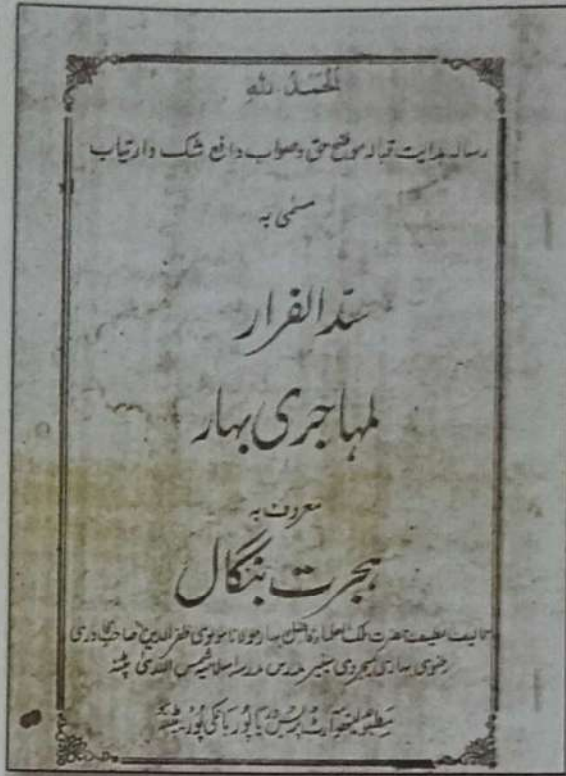 الحمد للہ
رسالہ ہدایت قبالہ موضح حق وصواب دافع شک وارتیاب
مسمی بہ
سد الفرار
لمہاجری بہار
معروف بہ
ہجرت بنگال
تالیف لطیف حضرت ملک العلماء فاضل بہار مولانا مولوی ظفر الدین صاحب قادری
رضوی بہاری سینیر مدرس مدرسہ اسلامیہ شمس الہدیٰ پٹنہ
پریس بانکی پور پٹنہ